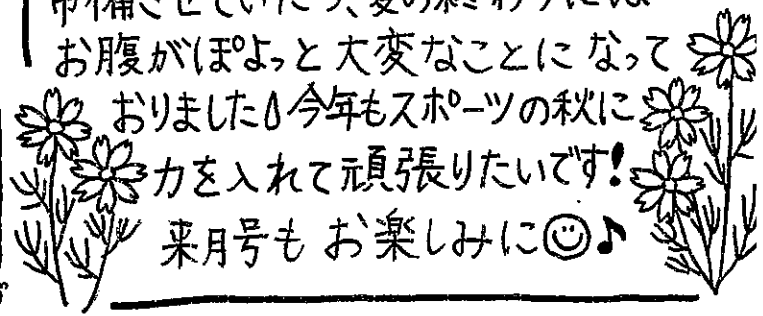 お腹がぽよっと大変なことになって
おりました💧今年もスポーツの秋に
力を入れて頑張りたいです!
来月号もお楽しみに☺♪